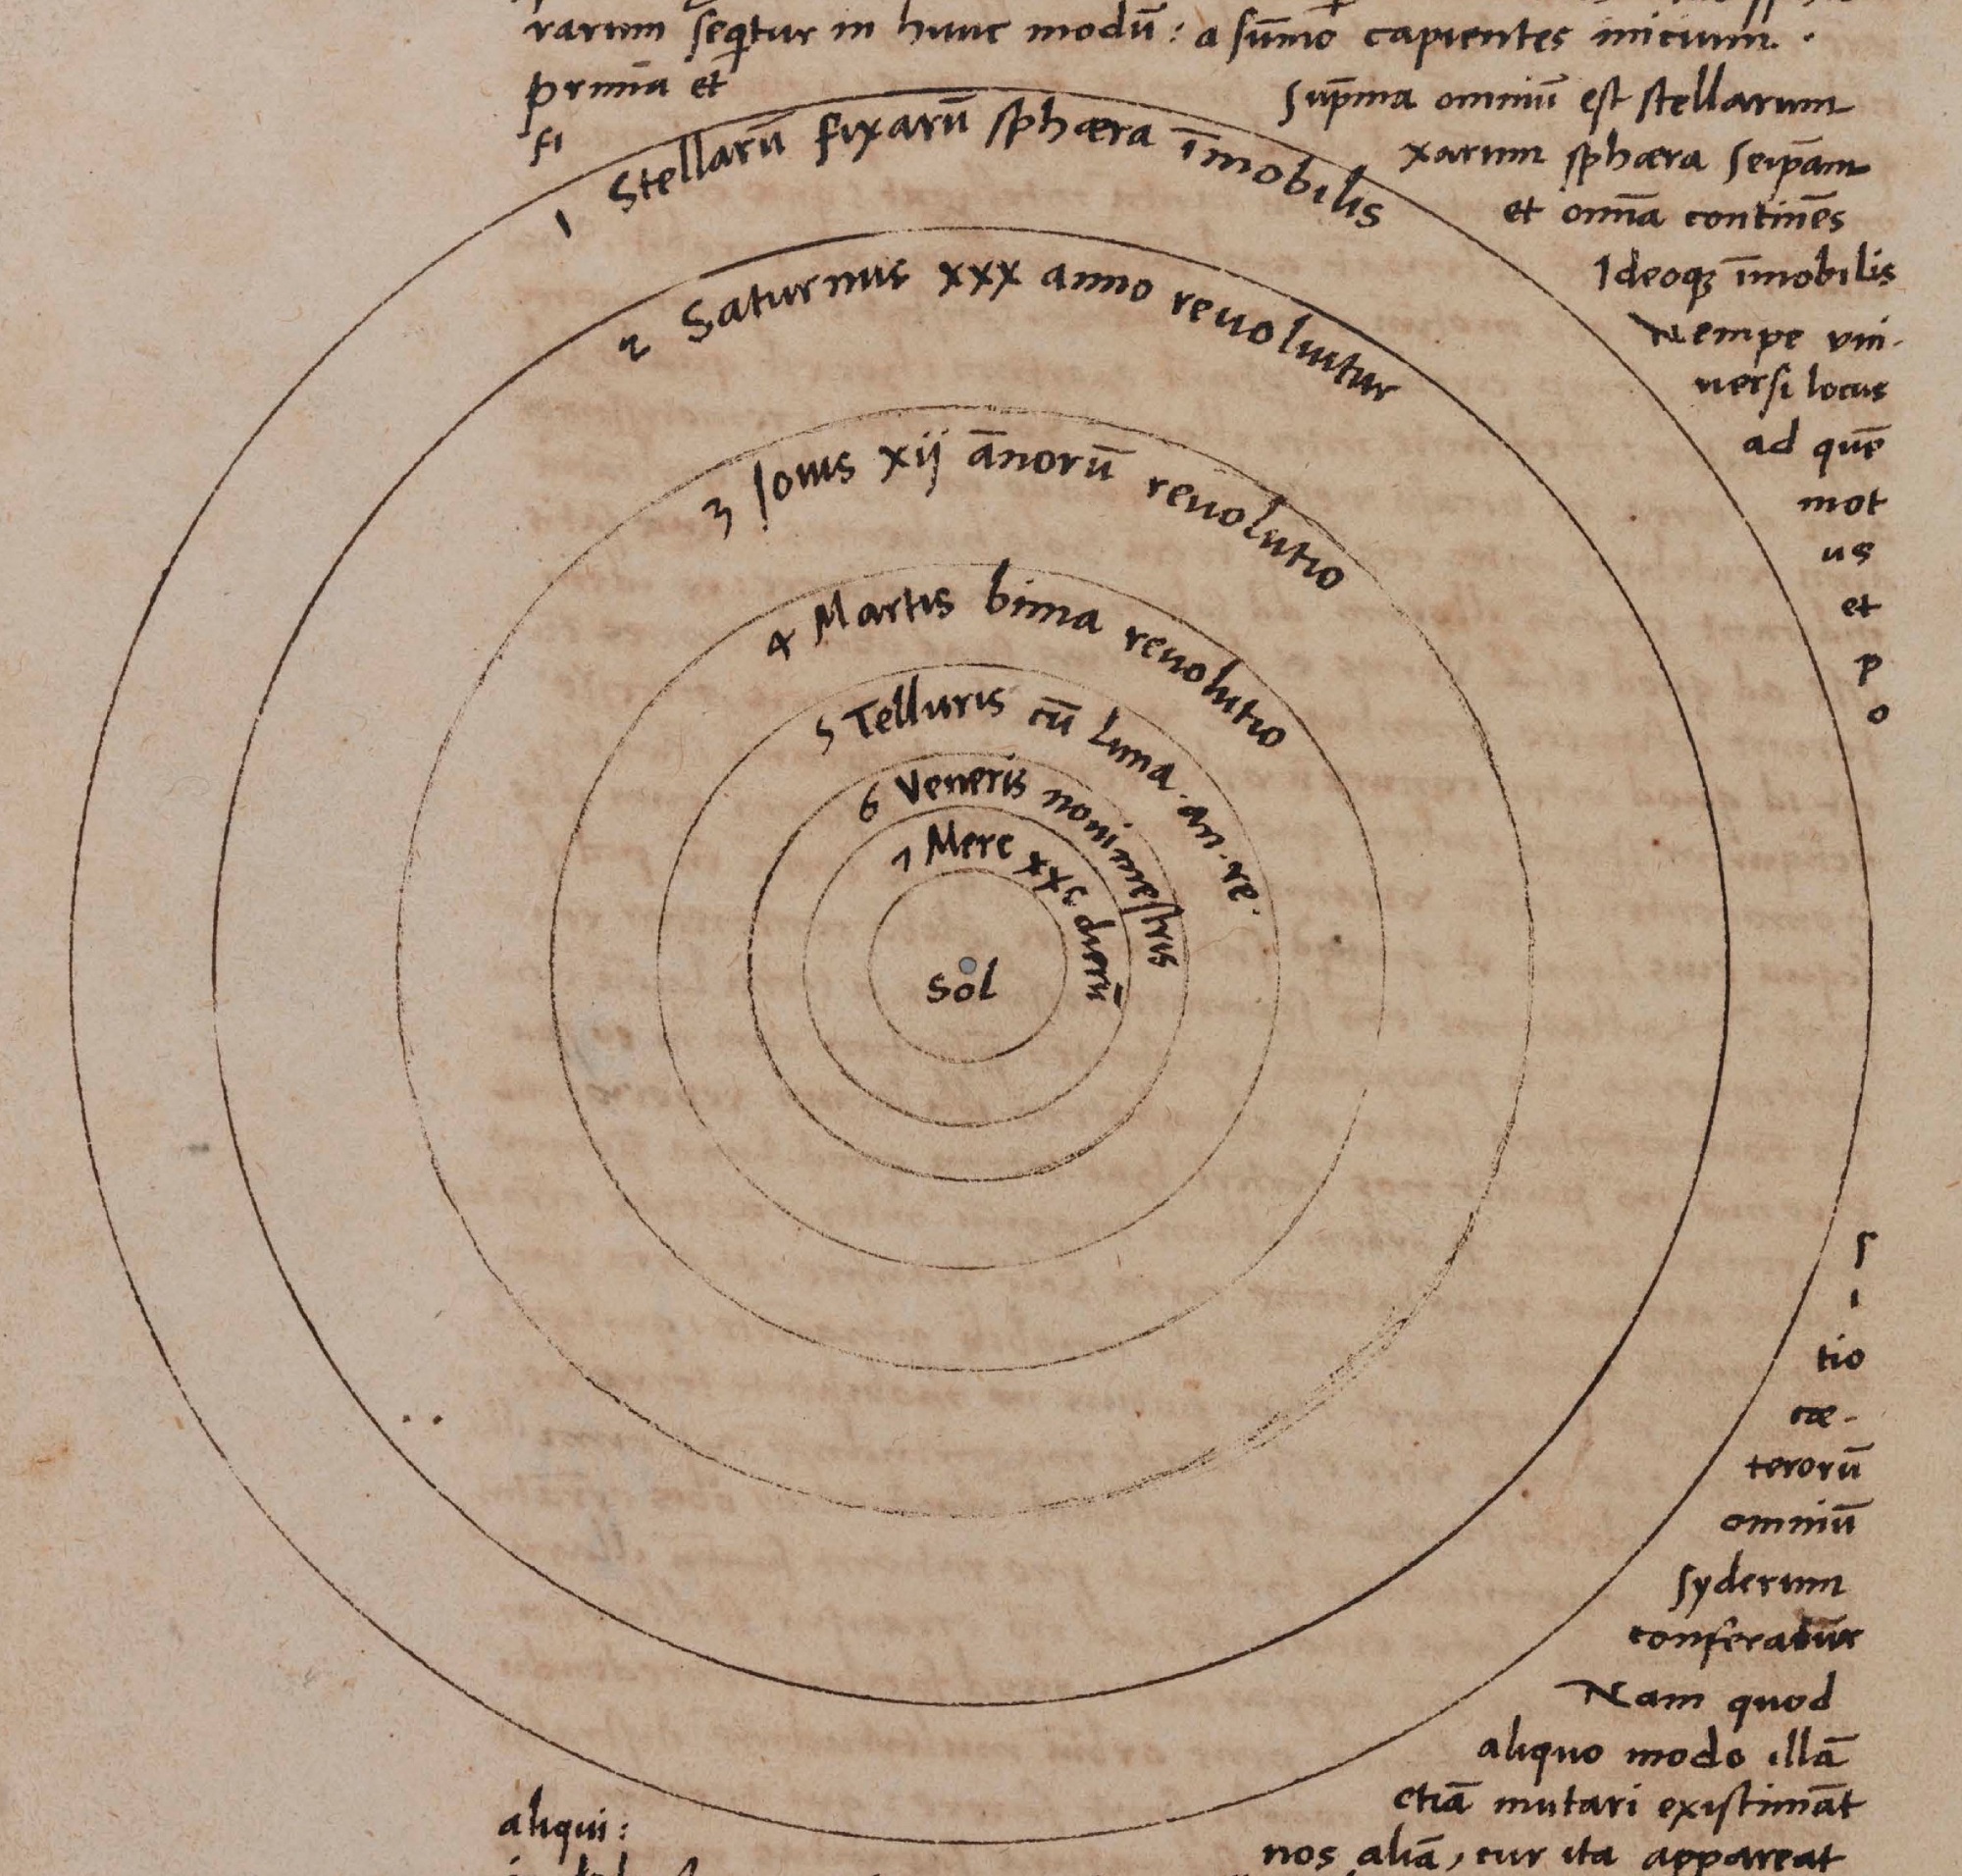 rarum seq̃tur in hunc modũ: a sũmo capientes inicium.
prima et
fi
Sup̃ma omniũ est stellarum
xarum sphæra seip̃am
et omĩa continẽs
Ideoqꝫ ĩmobilis
Nempe vni-
versi locus
ad quẽ
mot
us
et
p
o
s
i
tio
cæ-
terorũ
omniũ
syderum
conferatur
Nam quod
aliquo modo illã
etiã mutari existimãt
aliqui:
nos aliã, cur ita appareat
1 Stellarũ fixarũ sphæra ĩmobilis
2 Saturnus xxx anno reuoluitur
3 Jouis xij ãnorũ reuolutio
4 Martis bima reuolutio
5 Telluris cũ Luna. an. re.
6 Veneris nonimestris
7 Merc xxc dierũ
Sol